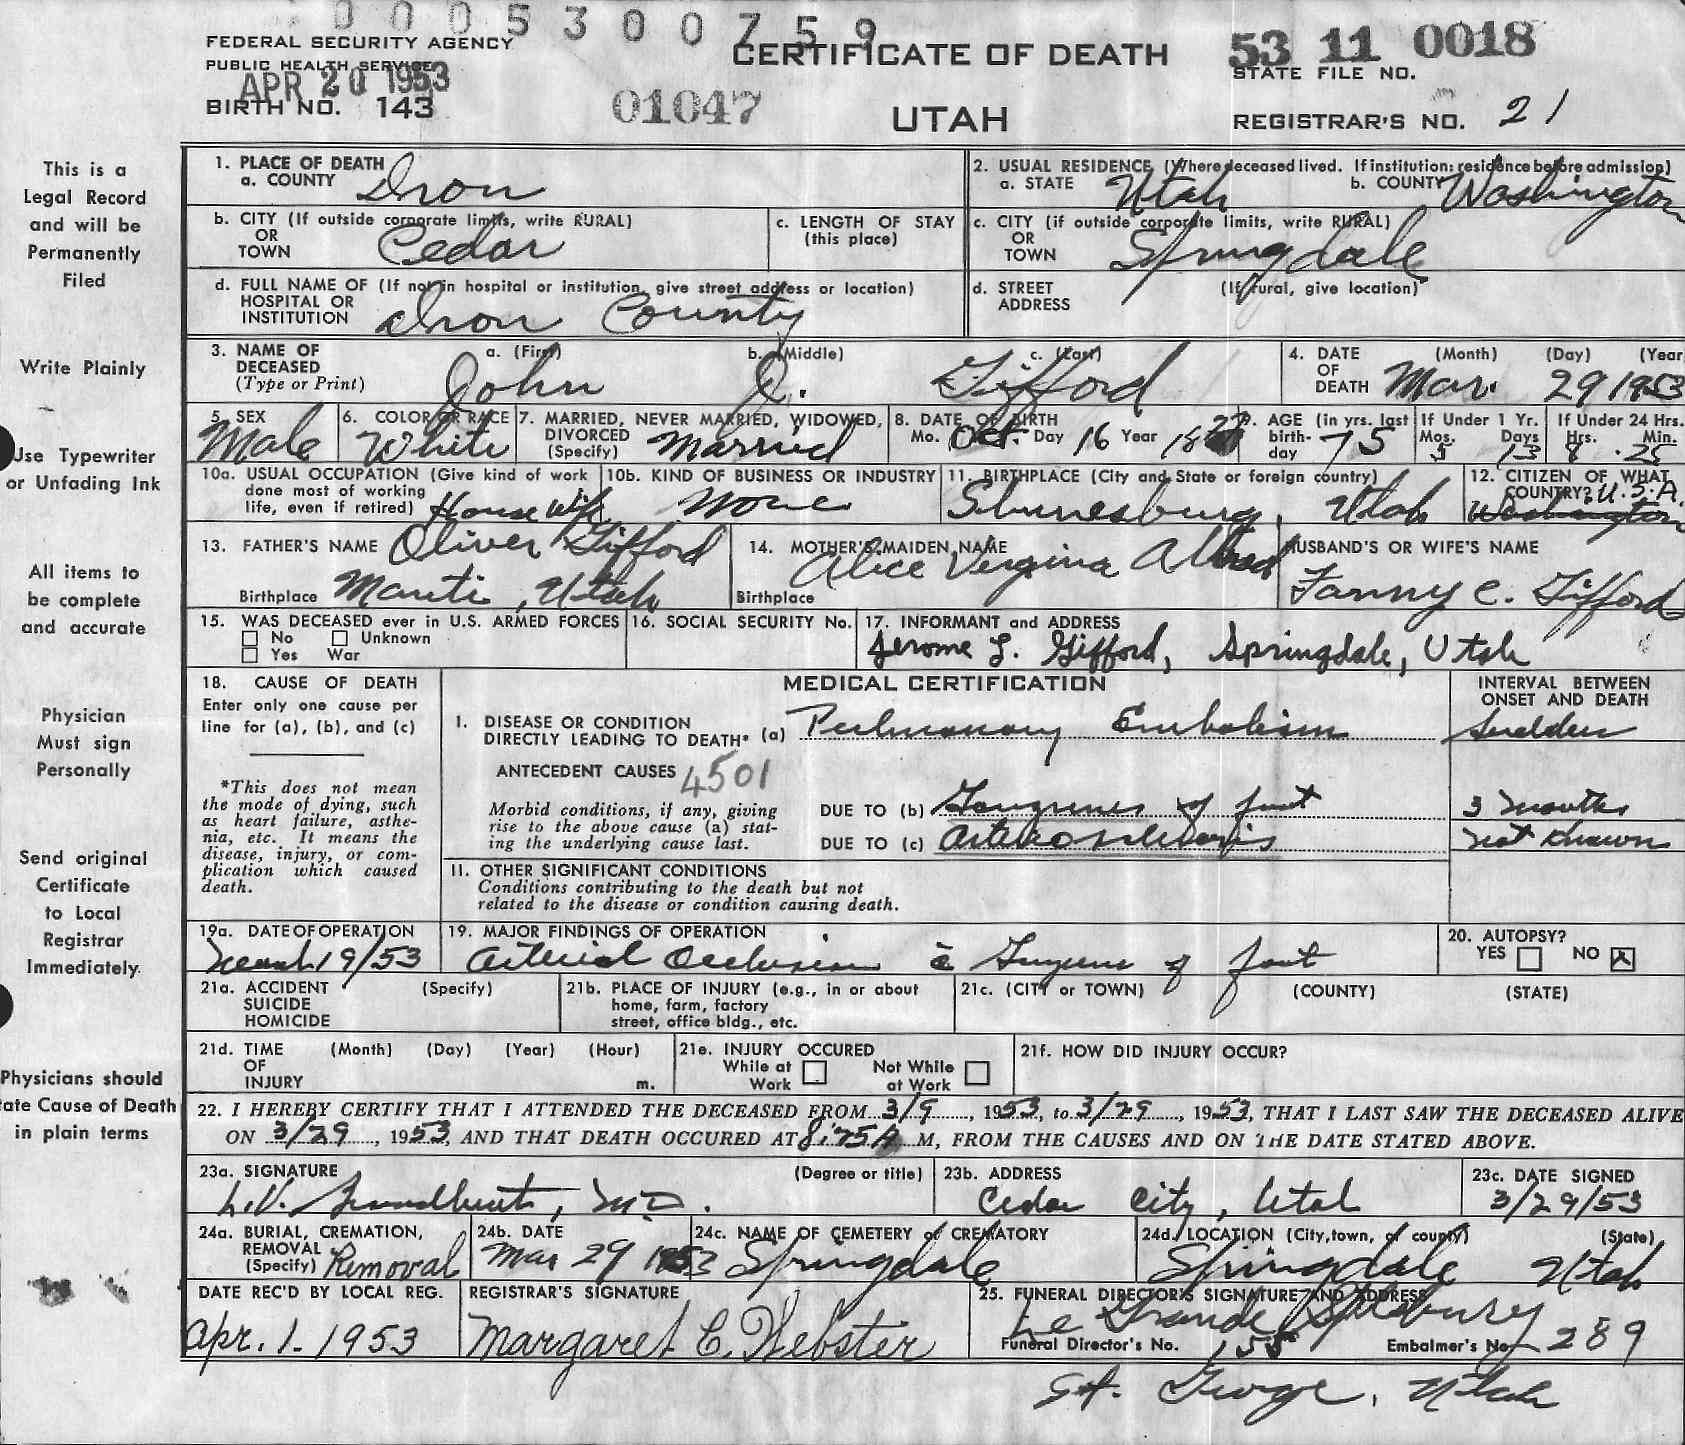 0 0 0 5 3 0 0 7 5 9
FEDERAL SECURITY AGENCY
PUBLIC HEALTH SERVICE
APR 20 1953
BIRTH NO. 143
01047
CERTIFICATE OF DEATH
UTAH
53 11 0018
STATE FILE NO.
REGISTRAR'S NO. 21
This is a
Legal Record
and will be
Permanently
Filed
Write Plainly
Use Typewriter
or Unfading Ink
All items to
be complete
and accurate
Physician
Must sign
Personally
Send original
Certificate
to Local
Registrar
Immediately.
Physicians should
ate Cause of Death
in plain terms
1. PLACE OF DEATH
a. COUNTY Iron
2. USUAL RESIDENCE (Where deceased lived. If institution: residence before admission)
a. STATE Utah b. COUNTY Washington
b. CITY (If outside corporate limits, write RURAL)
OR
TOWN Cedar
c. LENGTH OF STAY
(this place)
c. CITY (if outside corporate limits, write RURAL)
OR
TOWN Springdale
d. FULL NAME OF (If not in hospital or institution, give street address or location)
HOSPITAL OR
INSTITUTION Iron County
d. STREET (If rural, give location)
ADDRESS
3. NAME OF
DECEASED
(Type or Print)
a. (First) b. (Middle) c. (Last)
John Gifford
4. DATE (Month) (Day) (Year
OF
DEATH Mar. 29 1953
5. SEX
Male
6. COLOR OR RACE
White
7. MARRIED, NEVER MARRIED, WIDOWED,
DIVORCED
(Specify) Married
8. DATE OF BIRTH
Mo. Oct. Day 16 Year 1877
9. AGE (in yrs. last
birth-
day 75
If Under 1 Yr.
Mos. Days
5 13
If Under 24 Hrs.
Hrs. Min.
8 .25
10a. USUAL OCCUPATION (Give kind of work
done most of working
life, even if retired) Housewife
10b. KIND OF BUSINESS OR INDUSTRY
None
11. BIRTHPLACE (City and State or foreign country)
Shunesburg, Utah
12. CITIZEN OF WHAT
COUNTRY? U.S.A.
Washington
13. FATHER'S NAME Oliver Gifford
Birthplace Manti, Utah
14. MOTHER'S MAIDEN NAME
Alice Vergina Allred
Birthplace
HUSBAND'S OR WIFE'S NAME
Fanny C. Gifford
15. WAS DECEASED ever in U.S. ARMED FORCES
No Unknown
Yes War
16. SOCIAL SECURITY No.
17. INFORMANT and ADDRESS
Jerome L. Gifford, Springdale, Utah
18. CAUSE OF DEATH
Enter only one cause per
line for (a), (b), and (c)
*This does not mean
the mode of dying, such
as heart failure, asthe-
nia, etc. It means the
disease, injury, or com-
plication which caused
death.
MEDICAL CERTIFICATION
INTERVAL BETWEEN
ONSET AND DEATH
I. DISEASE OR CONDITION
DIRECTLY LEADING TO DEATH* (a) Pulmonary Embolism Sudden
ANTECEDENT CAUSES 4501
Morbid conditions, if any, giving
rise to the above cause (a) stat-
ing the underlying cause last.
DUE TO (b) Gangrenes of foot 3 months
DUE TO (c) Arteriosclerosis not known
11. OTHER SIGNIFICANT CONDITIONS
Conditions contributing to the death but not
related to the disease or condition causing death.
19a. DATE OF OPERATION
March 19/53
19. MAJOR FINDINGS OF OPERATION
Arterial Occlusion c̄ Gangrene of foot
20. AUTOPSY?
YES NO X
21a. ACCIDENT (Specify)
SUICIDE
HOMICIDE
21b. PLACE OF INJURY (e.g., in or about
home, farm, factory
street, office bldg., etc.
21c. (CITY or TOWN) (COUNTY) (STATE)
21d. TIME (Month) (Day) (Year) (Hour)
OF
INJURY m.
21e. INJURY OCCURED
While at Not While
Work at Work
21f. HOW DID INJURY OCCUR?
22. I HEREBY CERTIFY THAT I ATTENDED THE DECEASED FROM 3/9, 1953, to 3/29, 1953, THAT I LAST SAW THE DECEASED ALIVE
ON 3/29, 1953, AND THAT DEATH OCCURED AT 8:25A M, FROM THE CAUSES AND ON THE DATE STATED ABOVE.
23a. SIGNATURE (Degree or title)
L.V. M.D.
23b. ADDRESS
Cedar City, Utah
23c. DATE SIGNED
3/29/53
24a. BURIAL, CREMATION,
REMOVAL
(Specify) Removal
24b. DATE
Mar 29 1953
24c. NAME OF CEMETERY or CREMATORY
Springdale
24d. LOCATION (City, town, or county) (State)
Springdale Utah
DATE REC'D BY LOCAL REG.
Apr. 1. 1953
REGISTRAR'S SIGNATURE
Margaret C. Webster
25. FUNERAL DIRECTOR'S SIGNATURE AND ADDRESS
Le Grande
Funeral Director's No. 155 Embalmer's No. 289
St. George, Utah